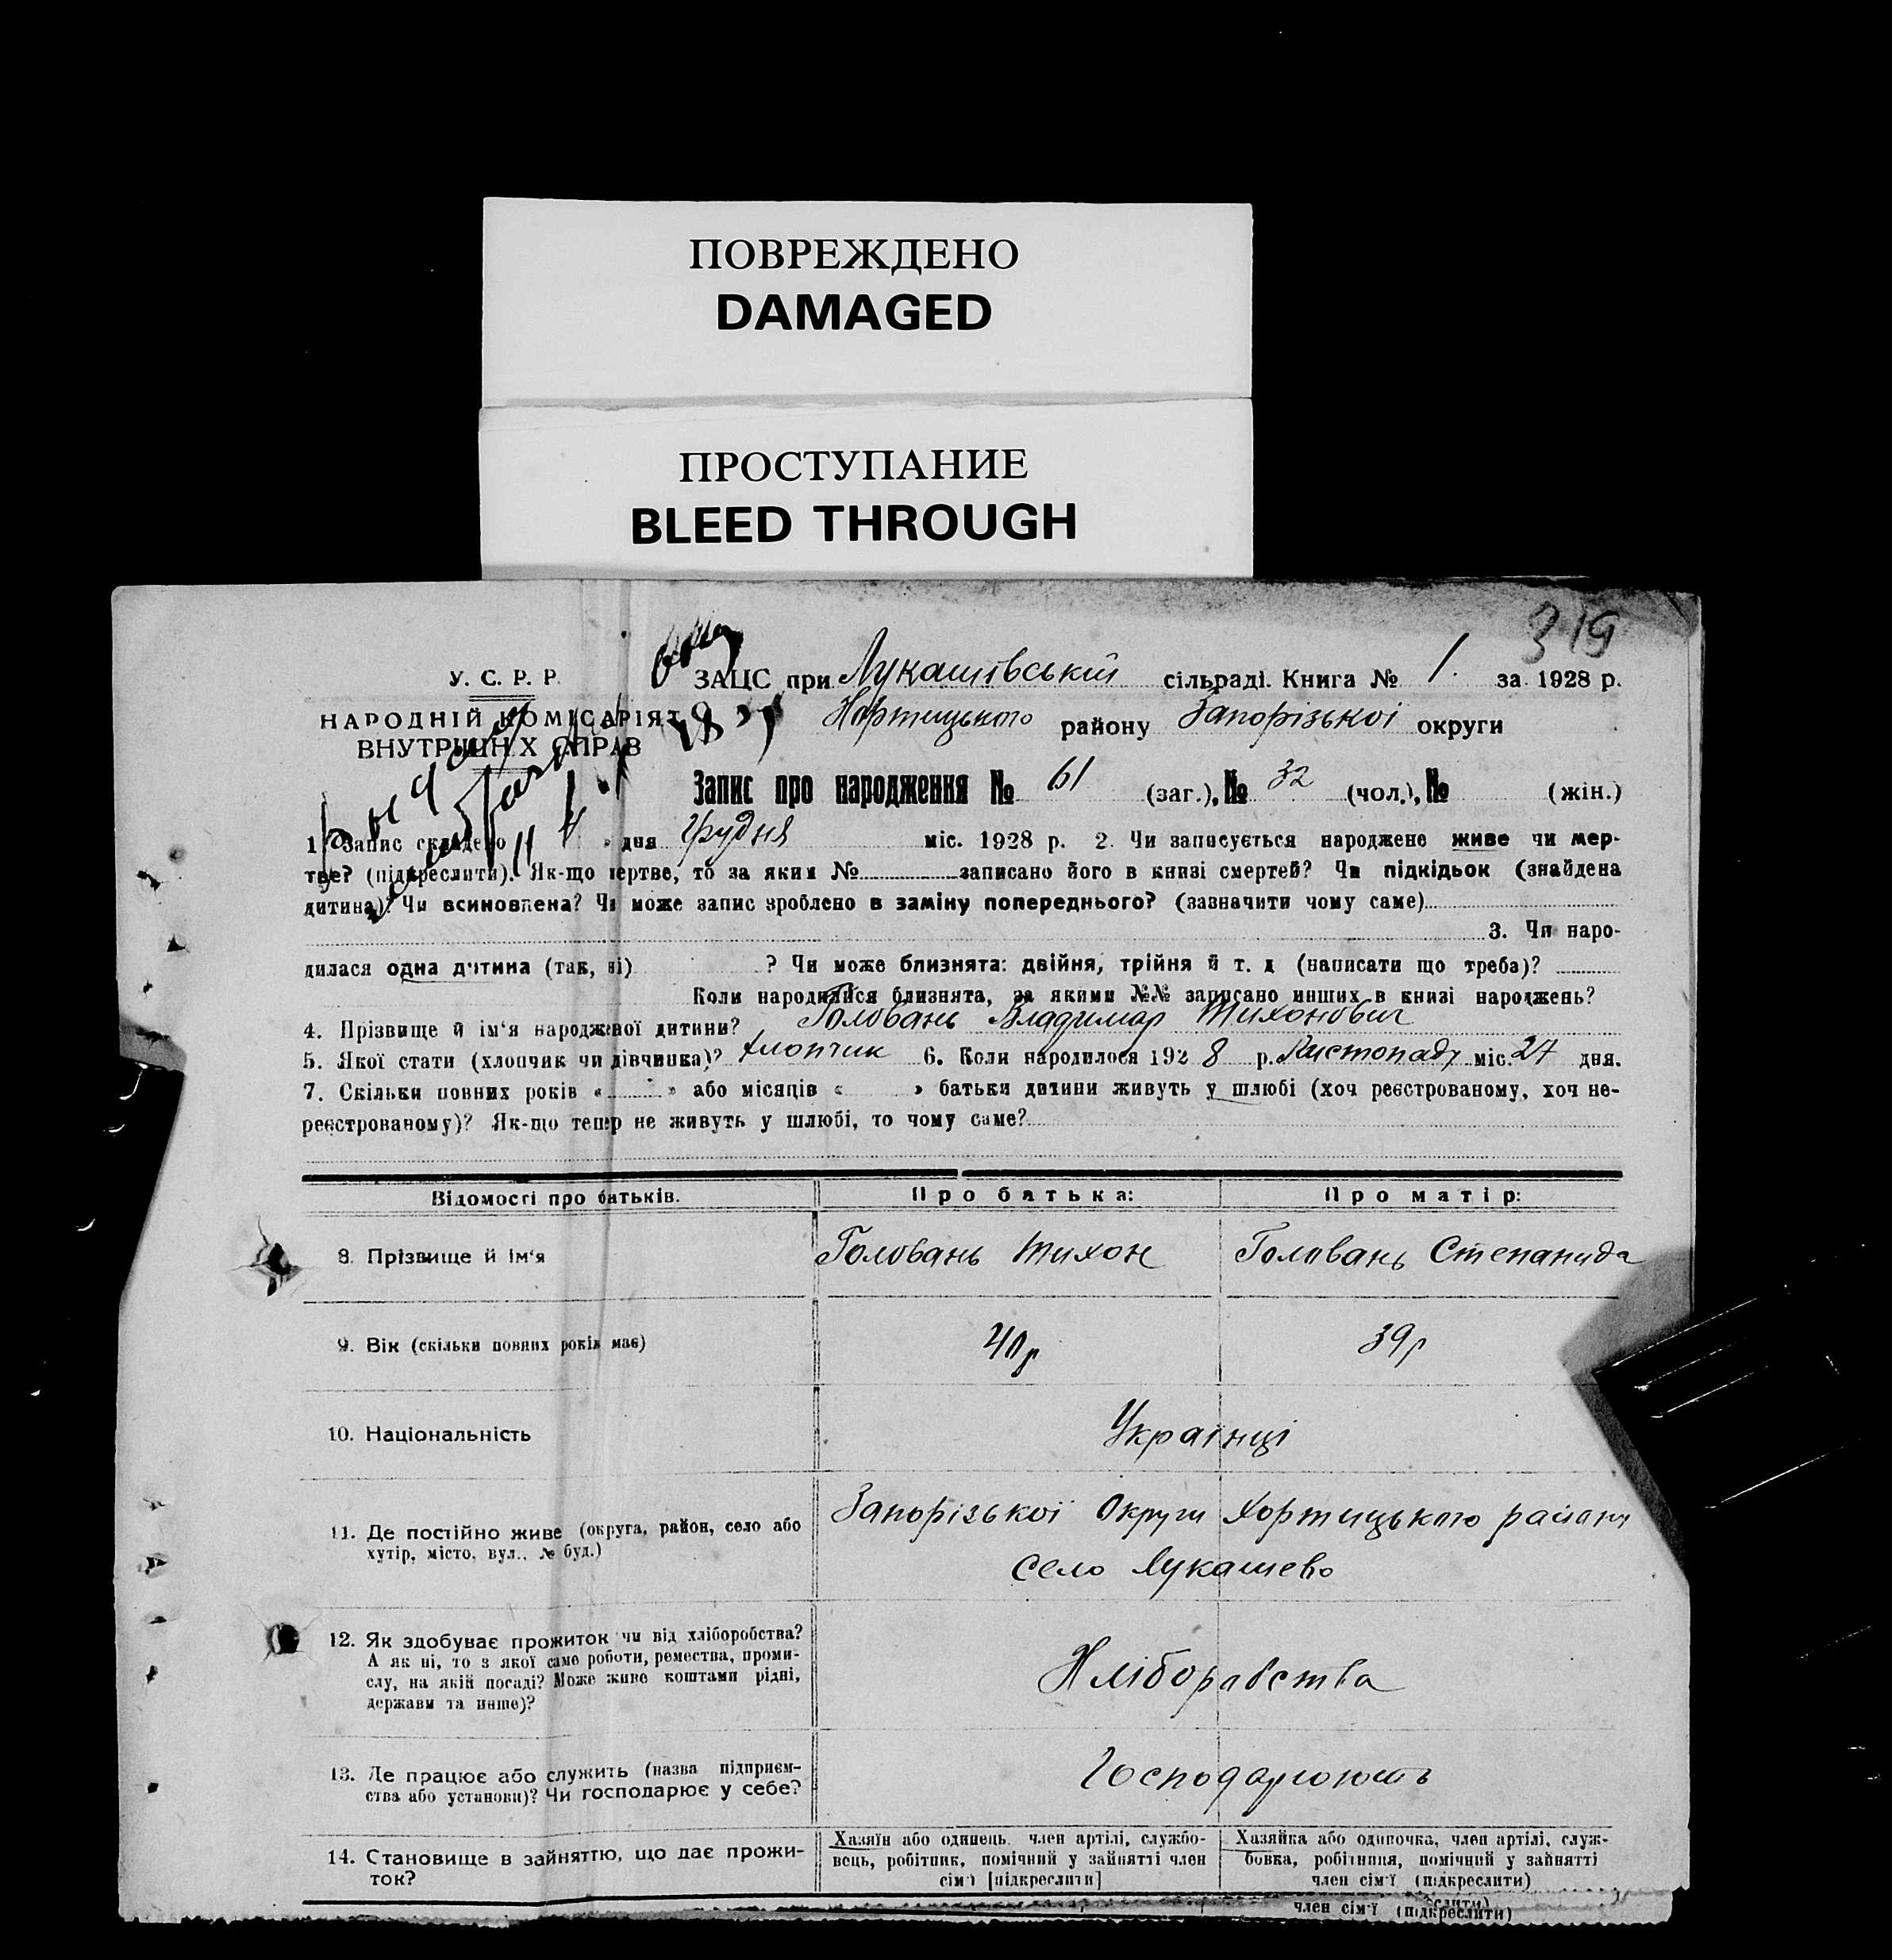 ПОВРЕЖДЕНО
DAMAGED
ПРОСТУПАНИЕ
BLEED THROUGH
319
У. С. Р. Р.
НАРОДНІЙ КОМІСАРІЯТ
ВНУТРІШНІХ СПРАВ
ЗАЦС при Лукашівській сільраді. Книга № 1. за 1928 р.
Хортицького району Запорізької округи
Запис про народження № 61 (заг.), № 32 (чол.), № (жін.)
1. Запис складено 4 » дня Грудня міс. 1928 р. 2. Чи записується народжене живе чи мер-
тве? (підкреслити). Як-що мертве, то за яким № записано його в книзі смертей? Чи підкідьок (знайдена
дитина)? Чи всиновлена? Чи може запис зроблено в заміну попереднього? (зазначити чому саме)
3. Чи наро-
дилася одна дитина (так, ні) ? Чи може близнята: двійня, трійня й т. д (написати що треба)?
Коли народилися близнята, за якими №№ записано инших в книзі народжень?
4. Прізвище й ім'я народженої дитини? Головань Владимар Тихонович
5. Якої стати (хлопчик чи дівчинка)? хлопчик 6. Коли народилося 1928 р. Листопаду міс. 27 дня.
7. Скільки повних років « » або місяців « » батьки дитини живуть у шлюбі (хоч реєстрованому, хоч не-
реєстрованому)? Як-що тепер не живуть у шлюбі, то чому саме?
Відомості про батьків. Про батька: Про матір:
8. Прізвище й ім'я Головань Тихон Головань Степанида
9. Вік (скільки повних років має) 40р 39р
10. Національність Українці
11. Де постійно живе (округа, район, село або
хутір, місто, вул., № буд.)
Запорізької Округи Хортицького району
село Лукашево
12. Як здобуває прожиток чи від хліборобства?
А як ні, то з якої саме роботи, ремества, проми-
слу, на якій посаді? Може живе коштами рідні,
держави та инше)?
Хліборабства
13. Де працює або служить (назва підприєм-
ства або установи)? Чи господарює у себе?
Господарюють
14. Становище в зайняттю, що дає прожи-
ток?
Хазяїн або одинець, член артілі, службо-
вець, робітник, помічний у зайнятті член
сім'ї [підкреслити]
Хазяйка або одиночка, член артілі, служ-
бовка, робітниця, помічний у зайнятті
член сім'ї (підкреслити)
член сім'ї (підкреслити)